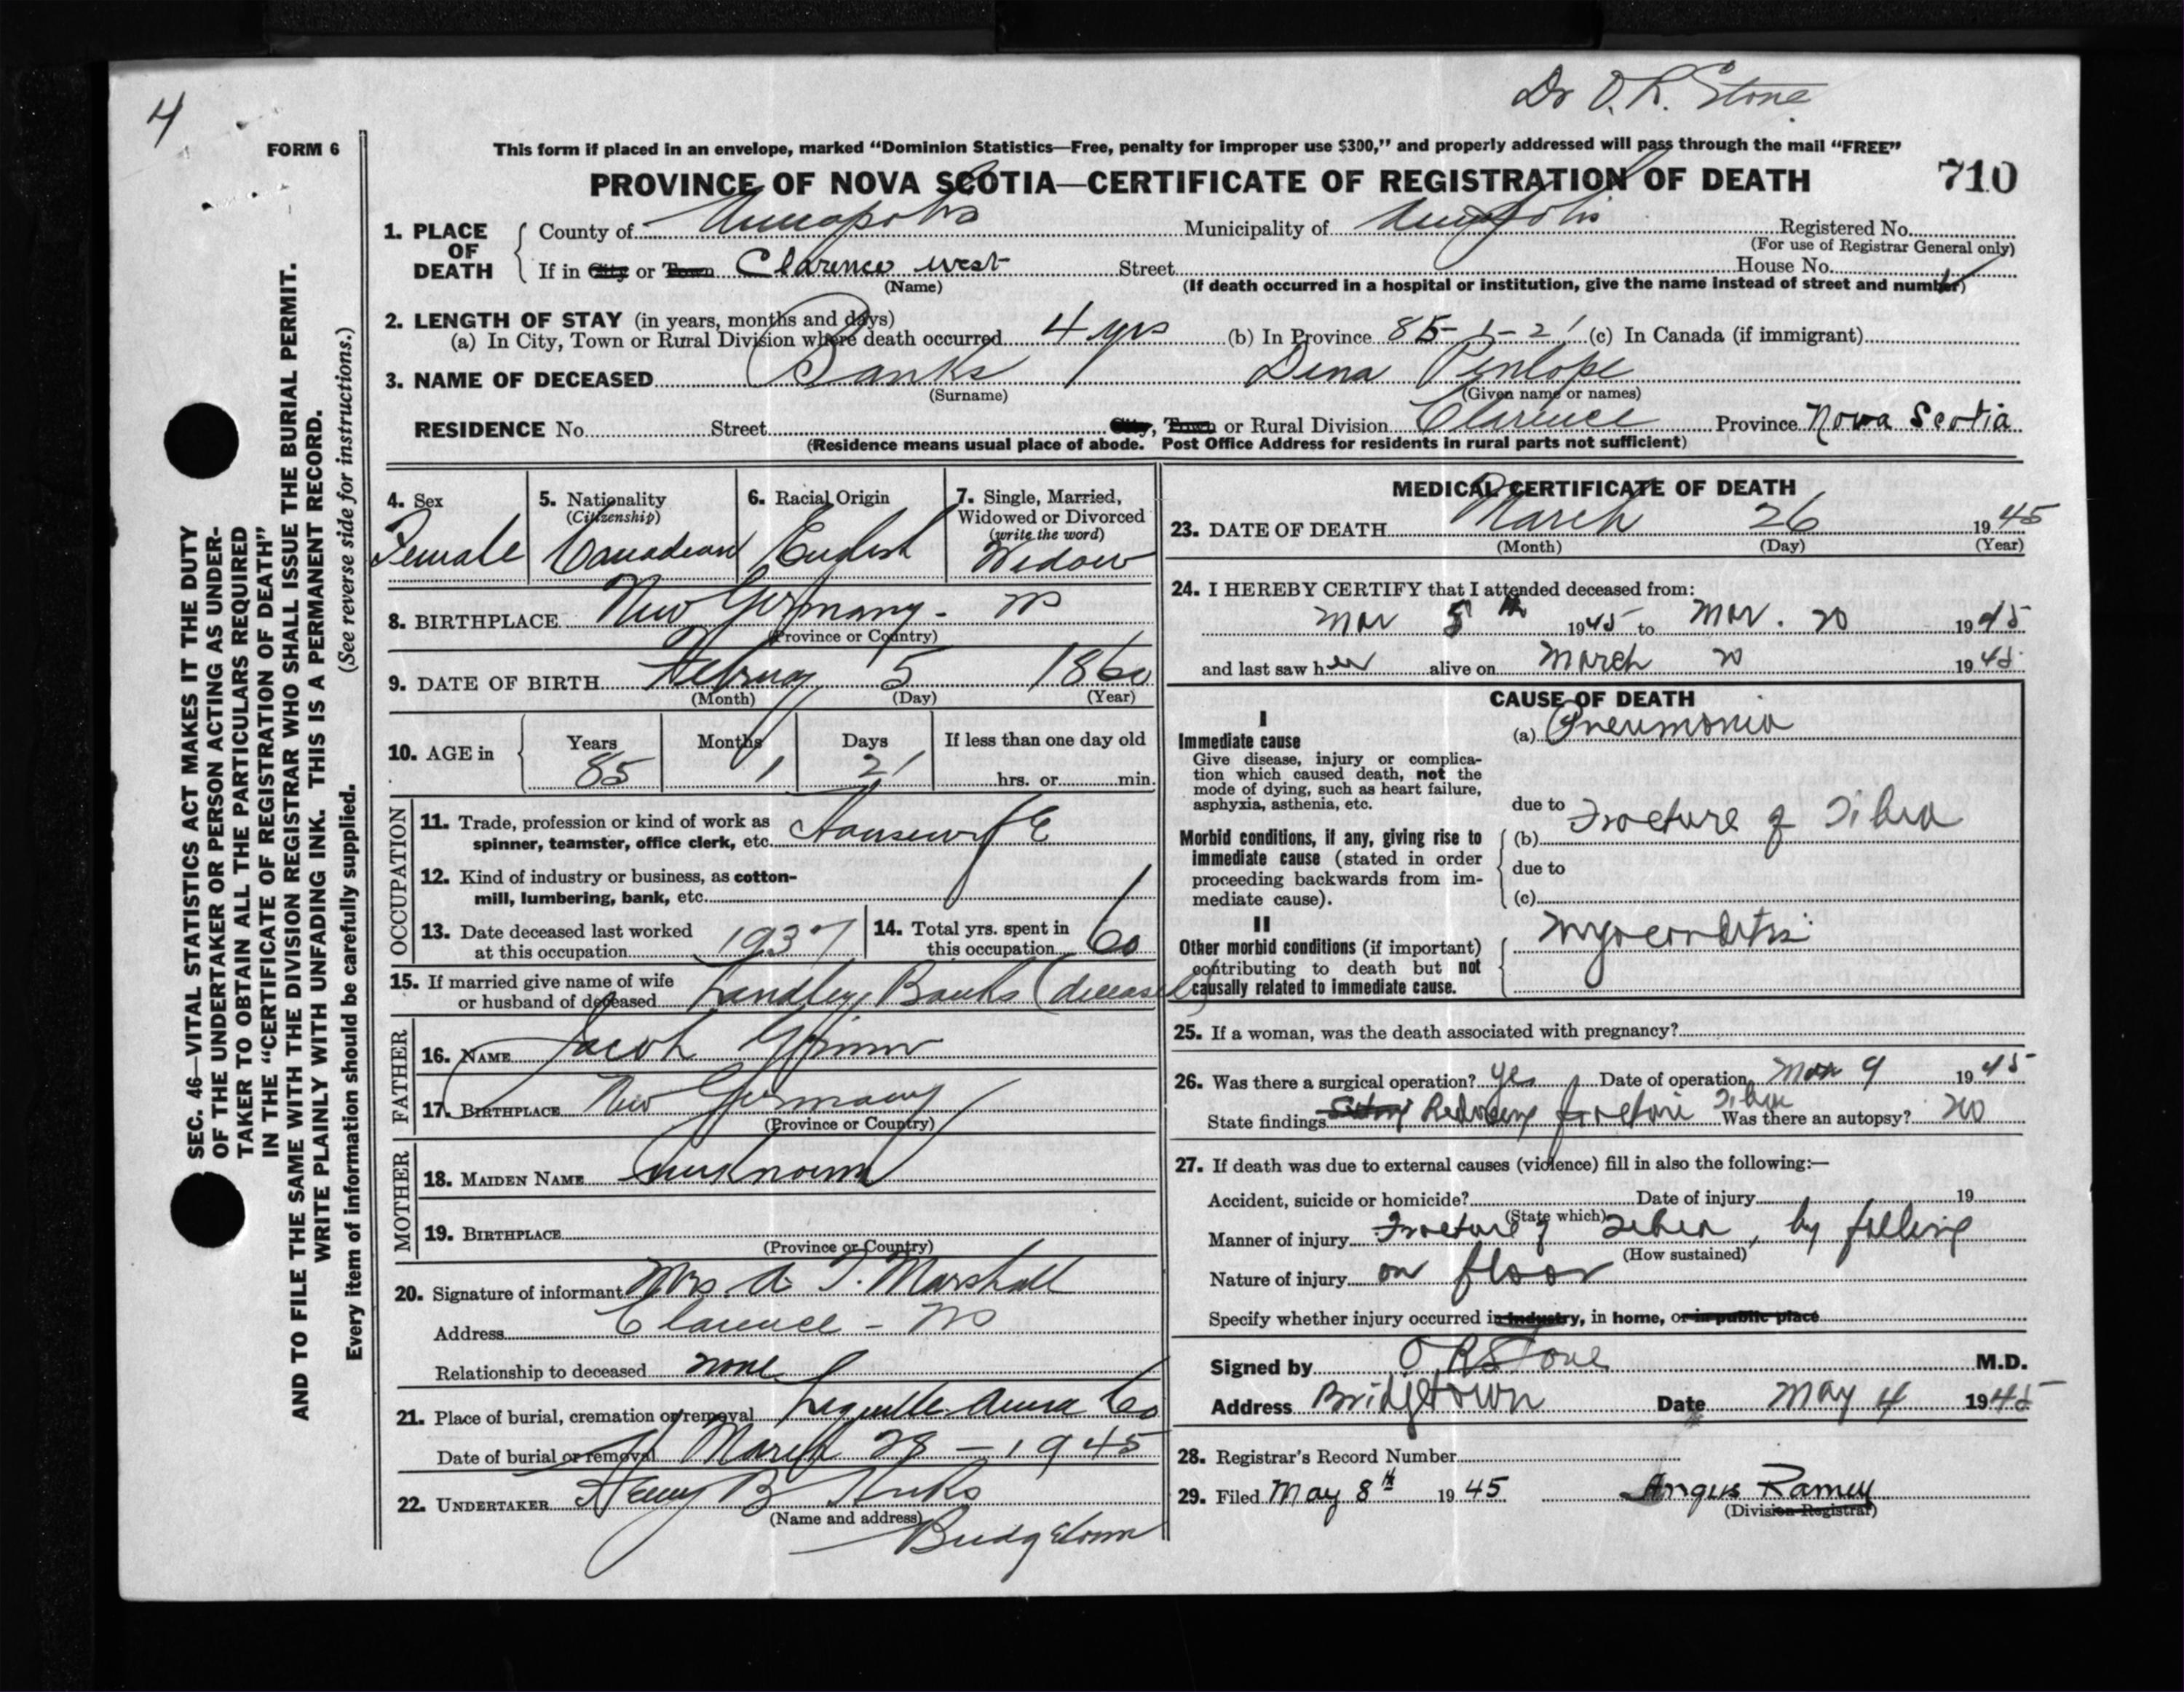 4
Dr O. R. Stone
FORM 6
This form if placed in an envelope, marked “Dominion Statistics—Free, penalty for improper use $300,” and properly addressed will pass through the mail “FREE”
PROVINCE OF NOVA SCOTIA—CERTIFICATE OF REGISTRATION OF DEATH
710
SEC. 46—VITAL STATISTICS ACT MAKES IT THE DUTY
OF THE UNDERTAKER OR PERSON ACTING AS UNDER-
TAKER TO OBTAIN ALL THE PARTICULARS REQUIRED
IN THE “CERTIFICATE OF REGISTRATION OF DEATH”
AND TO FILE THE SAME WITH THE DIVISION REGISTRAR WHO SHALL ISSUE THE BURIAL PERMIT.
WRITE PLAINLY WITH UNFADING INK. THIS IS A PERMANENT RECORD.
Every item of information should be carefully supplied. (See reverse side for instructions.)
1. PLACE OF DEATH County of Annapolis Municipality of Annapolis Registered No.
(For use of Registrar General only)
If in City or Town Clarence west Street House No.
(Name) (If death occurred in a hospital or institution, give the name instead of street and number)
2. LENGTH OF STAY (in years, months and days)
(a) In City, Town or Rural Division where death occurred 4 yrs (b) In Province 85-1-21 (c) In Canada (if immigrant)
3. NAME OF DECEASED Banks Dena Penlope
(Surname) (Given name or names)
RESIDENCE No. Street City, Town or Rural Division Clarence Province Nova Scotia
(Residence means usual place of abode. Post Office Address for residents in rural parts not sufficient)
4. Sex 5. Nationality (Citizenship) 6. Racial Origin 7. Single, Married, Widowed or Divorced (write the word)
Female Canadian English Widow
8. BIRTHPLACE New Germany - NS
(Province or Country)
9. DATE OF BIRTH Februay 5 1860
(Month) (Day) (Year)
10. AGE in Years Months Days If less than one day old
85 1 21 hrs. or min.
OCCUPATION
11. Trade, profession or kind of work as
spinner, teamster, office clerk, etc. HousewifE
12. Kind of industry or business, as cotton-
mill, lumbering, bank, etc.
13. Date deceased last worked
at this occupation 1937
14. Total yrs. spent in
this occupation 60
15. If married give name of wife
or husband of deceased Landley Banks (deceased)
FATHER
16. NAME Jacob
17. BIRTHPLACE New Germany
(Province or Country)
MOTHER
18. MAIDEN NAME unknown
19. BIRTHPLACE
(Province or Country)
20. Signature of informant Mrs. A. T. Marshall
Address Clarence - NS
Relationship to deceased none
21. Place of burial, cremation or removal Lequille Anna Co
Date of burial or removal March 28 - 1945
22. UNDERTAKER Henry B Hicks
(Name and address)
Bridgetown
MEDICAL CERTIFICATE OF DEATH
23. DATE OF DEATH March 26 1945
(Month) (Day) (Year)
24. I HEREBY CERTIFY that I attended deceased from:
Mar 8th 1945 to Mar. 20 1945
and last saw her alive on March 20 1945
CAUSE OF DEATH
I
Immediate cause
Give disease, injury or complica-
tion which caused death, not the
mode of dying, such as heart failure,
asphyxia, asthenia, etc.
(a) Pneumonia
due to
Morbid conditions, if any, giving rise to
immediate cause (stated in order
proceeding backwards from im-
mediate cause).
(b) Fracture of Tibia
due to
(c)
II
Other morbid conditions (if important)
contributing to death but not
causally related to immediate cause.
Myocarditis
25. If a woman, was the death associated with pregnancy?
26. Was there a surgical operation? yes Date of operation Mar 9 1945
State findings Reducing fracture Tibia Was there an autopsy? no
27. If death was due to external causes (violence) fill in also the following:—
Accident, suicide or homicide? Date of injury 19
(State which)
Manner of injury Fracture of Tibia, by falling
(How sustained)
Nature of injury on floor
Specify whether injury occurred in industry, in home, or in public place
Signed by O R Stone M.D.
Address Bridgetown Date May 4 1945
28. Registrar's Record Number
29. Filed May 8th 1945 Angus Ramey
(Division Registrar)